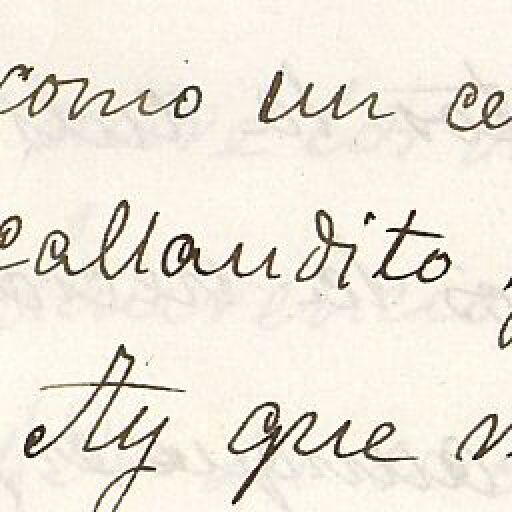 como un ce
callandito
Ay que